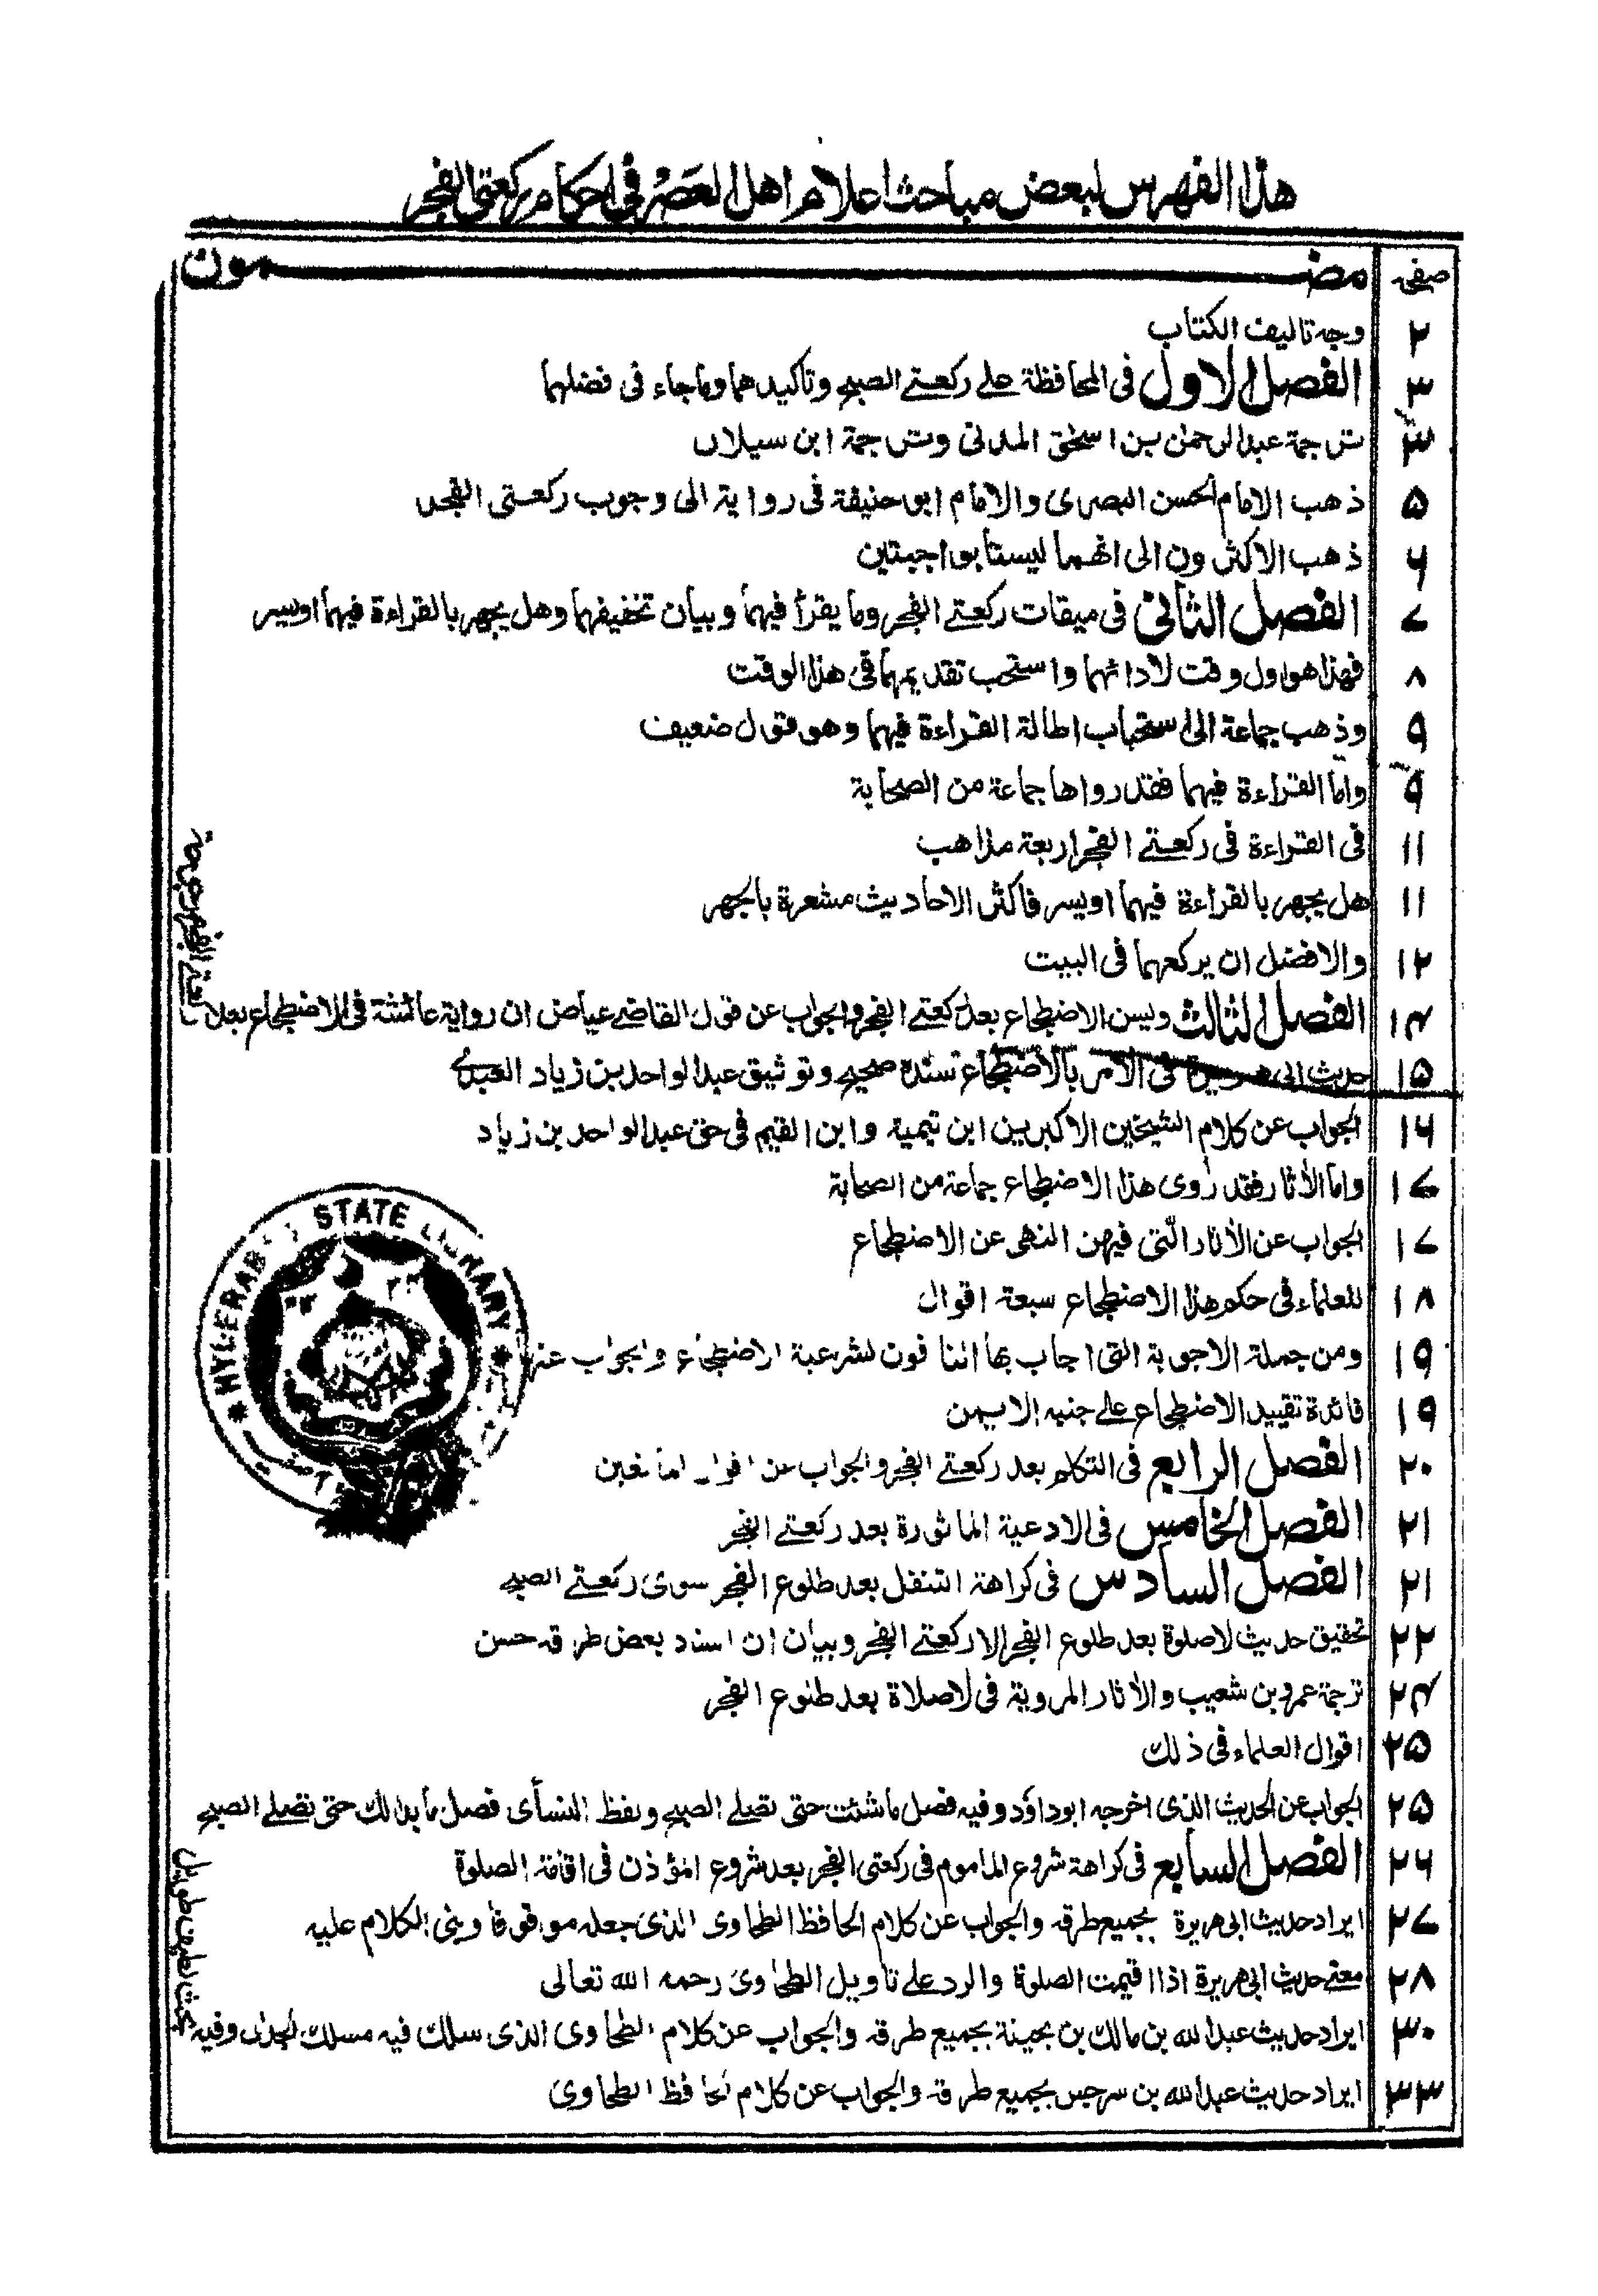 هذا الفهرس لبعض مباحث اعلام اهل العصر فى احكام ركعتى الفجر
صفحه مضمون
٢ وجه تاليف الكتاب
٣ الفصل الاول فى المحافظة على ركعتے الصبح وتاكيدهما وما جاء فى فضلهما
٣ ترجمة عبد الرحمن بن اسحق المدنى وترجمة ابن سيلان
۵ ذهب الامام الحسن البصرى والامام ابو حنيفة فى رواية الى وجوب ركعتى الفجر
۶ ذهب الاكثرون الى انهما ليستا بواجبتين
۷ الفصل الثانى فى ميقات ركعتے الفجر وما يقرأ فيهما وبيان تخفيفهما وهل يجهر بالقراءة فيهما اويسر
۸ فهذا هو اول وقت لادائهما واستحب تقديمهما فى هذا الوقت
۹ وذهب جماعة الى استحباب اطالة القراءة فيهما وهو قول ضعيف
۹ واما القراءة فيهما فقد رواها جماعة من الصحابة
۱۱ فى القراءة فى ركعتے الفجر اربعة مذاهب
۱۱ هل يجهر بالقراءة فيهما اويسر فاكثر الاحاديث مشعرة بالجهر
۱۲ والافضل ان يركعهما فى البيت
۱۴ الفصل الثالث ويسن الاضطجاع بعد ركعتے الفجر والجواب عن قول القاضے عياض ان رواية عائشة فى الاضطجاع بعد ركعتے الفجر مرجوحة
۱۵ حديث ابى هريرة فى الامر بالاضطجاع سنده صحيح وتوثيق عبد الواحد بن زياد العبدے
۱۶ الجواب عن كلام الشيخين الاكبرين ابن تيمية وابن القيم فى حق عبد الواحد بن زياد
۱۷ واما الأثار فقد روى هذا الاضطجاع جماعة من الصحابة
۱۷ الجواب عن الأثار الّتى فيهن النهى عن الاضطجاع
۱۸ للعلماء فى حكم هذا الاضطجاع سبعة اقوال
۱۹ ومن جملة الاجوبة التى اجاب بها النافون لشرعية الاضطجاع والجواب عنها
۱۹ فائدة تقييد الاضطجاع على جنبه الايمن
۲۰ الفصل الرابع فى التكلم بعد ركعتے الفجر والجواب عن اقوال المانعين
۲۱ الفصل الخامس فى الادعية الماثورة بعد ركعتے الفجر
۲۱ الفصل السادس فى كراهة التنفل بعد طلوع الفجر سوى ركعتے الصبح
۲۲ تحقيق حديث لاصلوة بعد طلوع الفجر الا ركعتے الفجر وبيان ان اسناد بعض طرقه حسن
۲۴ ترجمة عمرو بن شعيب والأثار المروية فى لاصلاة بعد طلوع الفجر
۲۵ اقوال العلماء فى ذلك
۲۵ الجواب عن الحديث الذى اخرجه ابو داؤد وفيه فصل ما شئت حتى تصلے الصبح ولفظ النسأى فصل ما بدالك حتى تصلے الصبح
۲۶ الفصل السابع فى كراهة شروع الماموم فى ركعتى الفجر بعد شروع المؤذن فى اقامة الصلوة
۲۷ ايراد حديث ابى هريرة بجميع طرقه والجواب عن كلام الحافظ الطحاوى الذى جعله موقوفا وبنى الكلام عليه
۲۸ معنے حديث ابى هريرة اذا اقيمت الصلوة والرد على تاويل الطحاوى رحمه الله تعالى
۳۰ ايراد حديث عبد الله بن مالك بن بحينة بجميع طرقه والجواب عن كلام الطحاوى الذى سلك فيه مسلك الجدل وفيه بحث لطيف طويل
۳۳ ايراد حديث عبد الله بن سرجس بجميع طرقه والجواب عن كلام الحافظ الطحاوى
HYDERABAD STATE LIBRARY